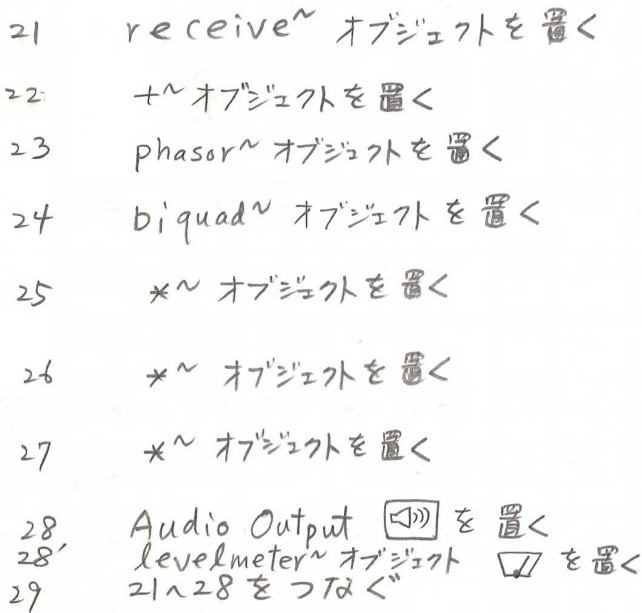 21 receive~ オブジェクトを置く
22 +~ オブジェクトを置く
23 phasor~ オブジェクトを置く
24 biquad~ オブジェクトを置く
25 *~ オブジェクトを置く
26 *~ オブジェクトを置く
27 *~ オブジェクトを置く
28 Audio Output を置く
28' levelmeter~ オブジェクト を置く
29 21~28をつなぐ